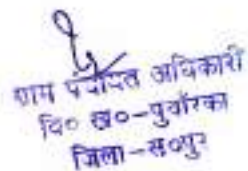 ग्राम पंचायत अधिकारी
वि० ख०-पुवॉरका
जिला-स०पुर